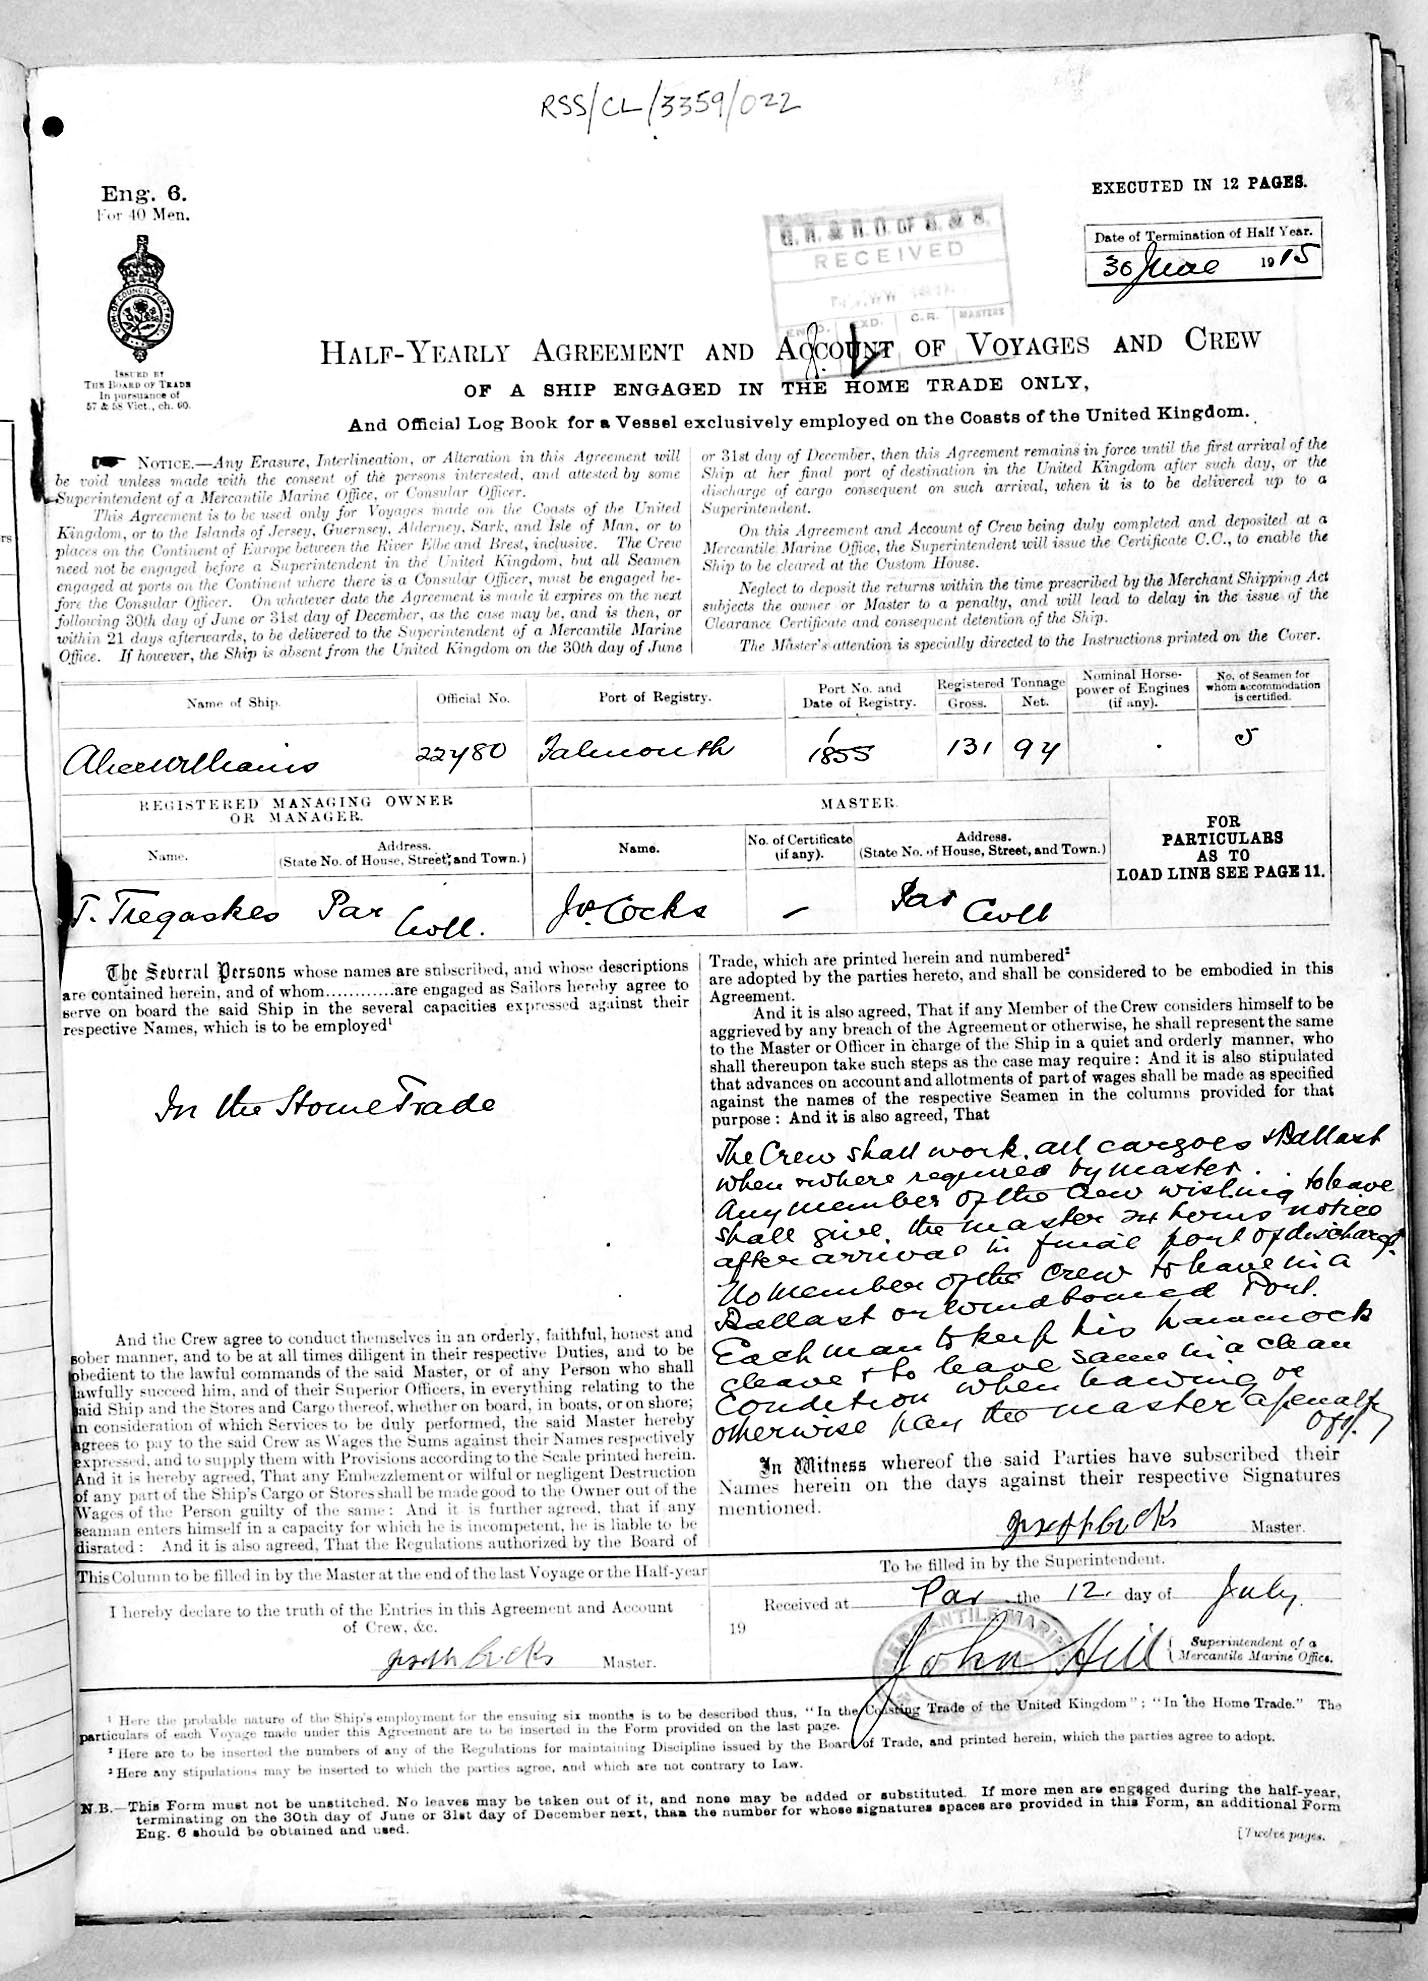 RSS/CL/3359/022
Eng. 6.
For 40 Men.
EXECUTED IN 12 PAGES.
Date of Termination of Half Year.
30 June 1915
RECEIVED
C.R. MASTERS
ISSUED BY
THE BOARD OF TRADE
In pursuance of
57 & 58 Vict., ch. 60.
HALF-YEARLY AGREEMENT AND ACCOUNT OF VOYAGES AND CREW
OF A SHIP ENGAGED IN THE HOME TRADE ONLY,
And Official Log Book for a Vessel exclusively employed on the Coasts of the United Kingdom.
NOTICE.—Any Erasure, Interlineation, or Alteration in this Agreement will
be void unless made with the consent of the persons interested, and attested by some
Superintendent of a Mercantile Marine Office, or Consular Officer.
This Agreement is to be used only for Voyages made on the Coasts of the United
Kingdom, or to the Islands of Jersey, Guernsey, Alderney, Sark, and Isle of Man, or to
places on the Continent of Europe between the River Elbe and Brest, inclusive. The Crew
need not be engaged before a Superintendent in the United Kingdom, but all Seamen
engaged at ports on the Continent where there is a Consular Officer, must be engaged be-
fore the Consular Officer. On whatever date the Agreement is made it expires on the next
following 30th day of June or 31st day of December, as the case may be, and is then, or
within 21 days afterwards, to be delivered to the Superintendent of a Mercantile Marine
Office. If however, the Ship is absent from the United Kingdom on the 30th day of June
or 31st day of December, then this Agreement remains in force until the first arrival of the
Ship at her final port of destination in the United Kingdom after such day, or the
discharge of cargo consequent on such arrival, when it is to be delivered up to a
Superintendent.
On this Agreement and Account of Crew being duly completed and deposited at a
Mercantile Marine Office, the Superintendent will issue the Certificate C.C., to enable the
Ship to be cleared at the Custom House.
Neglect to deposit the returns within the time prescribed by the Merchant Shipping Act
subjects the owner or Master to a penalty, and will lead to delay in the issue of the
Clearance Certificate and consequent detention of the Ship.
The Master's attention is specially directed to the Instructions printed on the Cover.
Name of Ship. Official No. Port of Registry. Port No. and Date of Registry. Registered Tonnage Gross. Net. Nominal Horse-power of Engines (if any). No. of Seamen for whom accommodation is certified.
Alice Williams 22480 Falmouth 1/1855 131 94 5
REGISTERED MANAGING OWNER
OR MANAGER.
MASTER.
Name. Address. (State No. of House, Street, and Town.) Name. No. of Certificate (if any). Address. (State No. of House, Street, and Town.)
FOR
PARTICULARS
AS TO
LOAD LINE SEE PAGE 11.
T. Tregaskes Par Cwll. Jos. Cocks – Par Cwll
The Several Persons whose names are subscribed, and whose descriptions
are contained herein, and of whom............are engaged as Sailors hereby agree to
serve on board the said Ship in the several capacities expressed against their
respective Names, which is to be employed¹
In the Home Trade
And the Crew agree to conduct themselves in an orderly, faithful, honest and
sober manner, and to be at all times diligent in their respective Duties, and to be
obedient to the lawful commands of the said Master, or of any Person who shall
lawfully succeed him, and of their Superior Officers, in everything relating to the
said Ship and the Stores and Cargo thereof, whether on board, in boats, or on shore;
in consideration of which Services to be duly performed, the said Master hereby
agrees to pay to the said Crew as Wages the Sums against their Names respectively
expressed, and to supply them with Provisions according to the Scale printed herein.
And it is hereby agreed, That any Embezzlement or wilful or negligent Destruction
of any part of the Ship's Cargo or Stores shall be made good to the Owner out of the
Wages of the Person guilty of the same: And it is further agreed, that if any
seaman enters himself in a capacity for which he is incompetent, he is liable to be
disrated: And it is also agreed, That the Regulations authorized by the Board of
Trade, which are printed herein and numbered²
are adopted by the parties hereto, and shall be considered to be embodied in this
Agreement.
And it is also agreed, That if any Member of the Crew considers himself to be
aggrieved by any breach of the Agreement or otherwise, he shall represent the same
to the Master or Officer in charge of the Ship in a quiet and orderly manner, who
shall thereupon take such steps as the case may require: And it is also stipulated
that advances on account and allotments of part of wages shall be made as specified
against the names of the respective Seamen in the columns provided for that
purpose: And it is also agreed, That
The Crew shall work all cargoes & Ballast
when & where required by master.
Any member of the Crew wishing to leave
shall give the master 24 hours notice
after arrival in final port of discharge.
No member of the Crew to leave in a
Ballast or windbound Port.
Each man to keep his hammock
cleave & to leave same in a clean
Condition when leaving or
otherwise pay the master a penalty
In Witness whereof the said Parties have subscribed their
Names herein on the days against their respective Signatures
mentioned.
Joseph Cocks Master.
This Column to be filled in by the Master at the end of the last Voyage or the Half-year
I hereby declare to the truth of the Entries in this Agreement and Account
of Crew, &c.
Joseph Cocks Master.
To be filled in by the Superintendent.
Received at Par the 12 day of July
19
MERCANTILE MARINE
John Hill Superintendent of a Mercantile Marine Office.
¹ Here the probable nature of the Ship's employment for the ensuing six months is to be described thus, "In the Coasting Trade of the United Kingdom"; "In the Home Trade." The
particulars of each Voyage made under this Agreement are to be inserted in the Form provided on the last page.
² Here are to be inserted the numbers of any of the Regulations for maintaining Discipline issued by the Board of Trade, and printed herein, which the parties agree to adopt.
³ Here any stipulations may be inserted to which the parties agree, and which are not contrary to Law.
N.B.—This Form must not be unstitched. No leaves may be taken out of it, and none may be added or substituted. If more men are engaged during the half-year,
terminating on the 30th day of June or 31st day of December next, than the number for whose signatures spaces are provided in this Form, an additional Form
Eng. 6 should be obtained and used.
[Twelve pages.